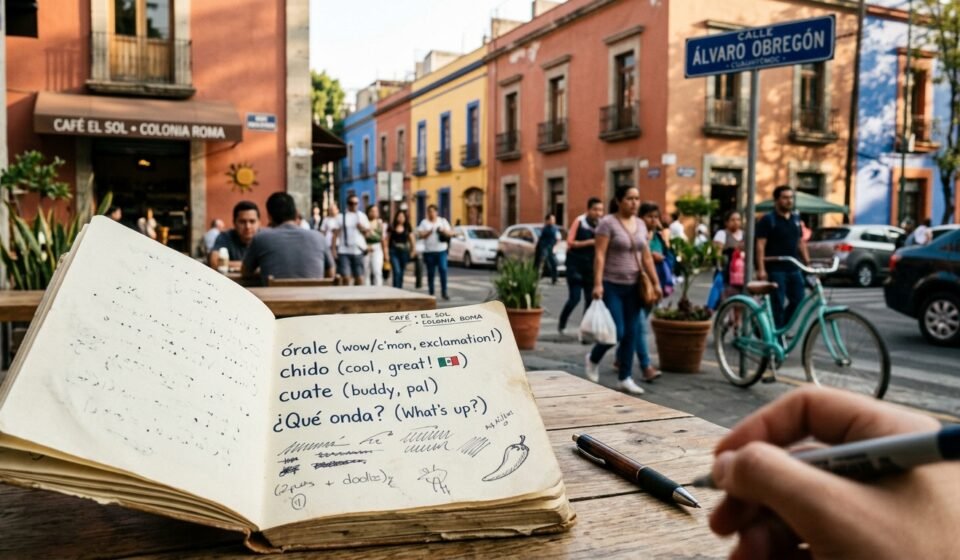 CAFÉ EL SOL • COLONIA ROMA
CALLE
ÁLVARO OBREGÓN
CAFÉ • EL SOL
• COLONIA ROMA
órale (wow/c'mon, exclamation!)
chido (cool, great! 🇲🇽)
cuate (buddy, pal)
¿Qué onda? (What's up?)